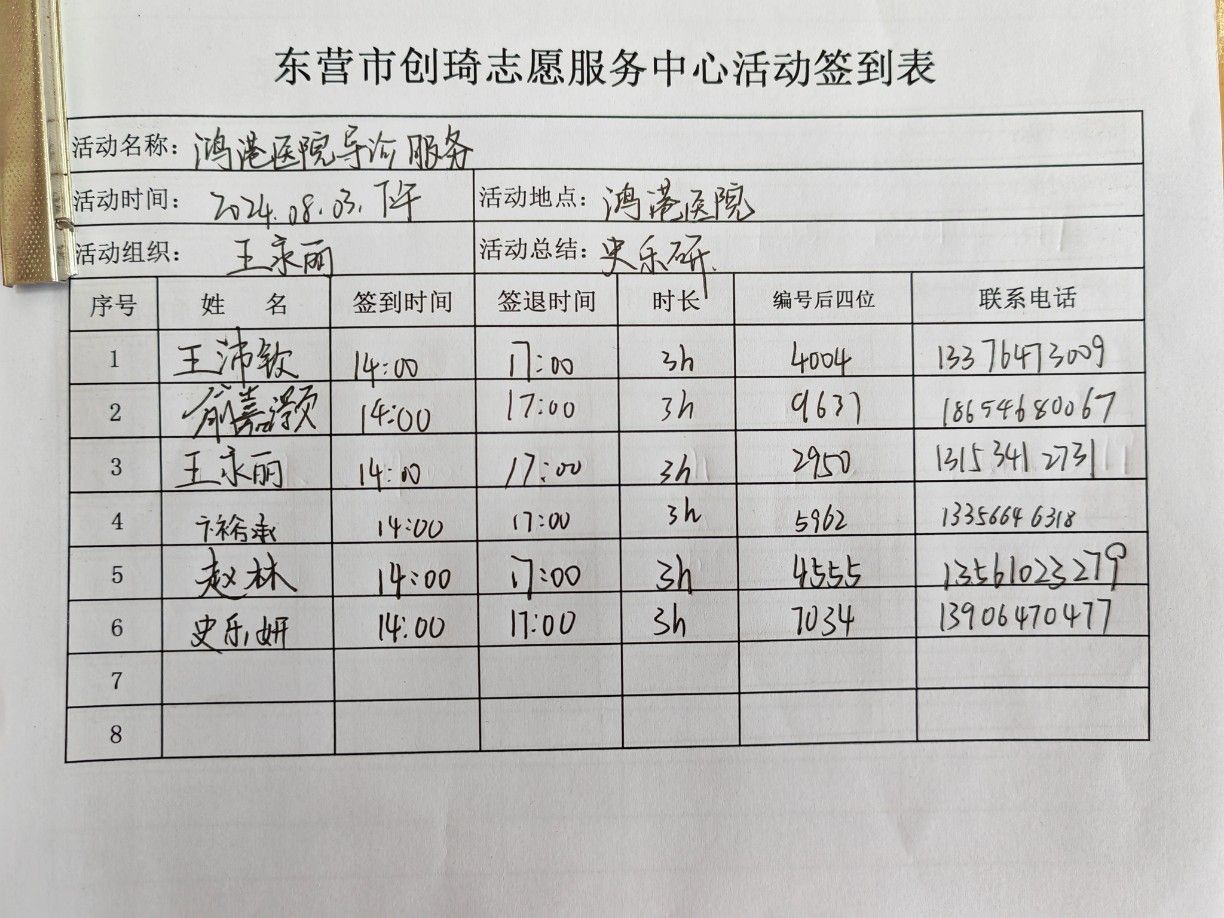 东营市创琦志愿服务中心活动签到表
活动名称：鸿港医院导诊服务
活动时间：2024.08.03.下午 活动地点：鸿港医院
活动组织：王永丽 活动总结：史乐研.
序号 姓 名 签到时间 签退时间 时长 编号后四位 联系电话
1 王沛钦 14:00 17:00 3h 4004 13376473009
2 14:00 17:00 3h 9637 18654680067
3 王永丽 14:00 17:00 3h 2950 13153412731
4 卞裕承 14:00 17:00 3h 5962 13356646318
5 赵林 14:00 17:00 3h 4555 13561023279
6 史乐妍 14:00 17:00 3h 7034 13906470477
7
8